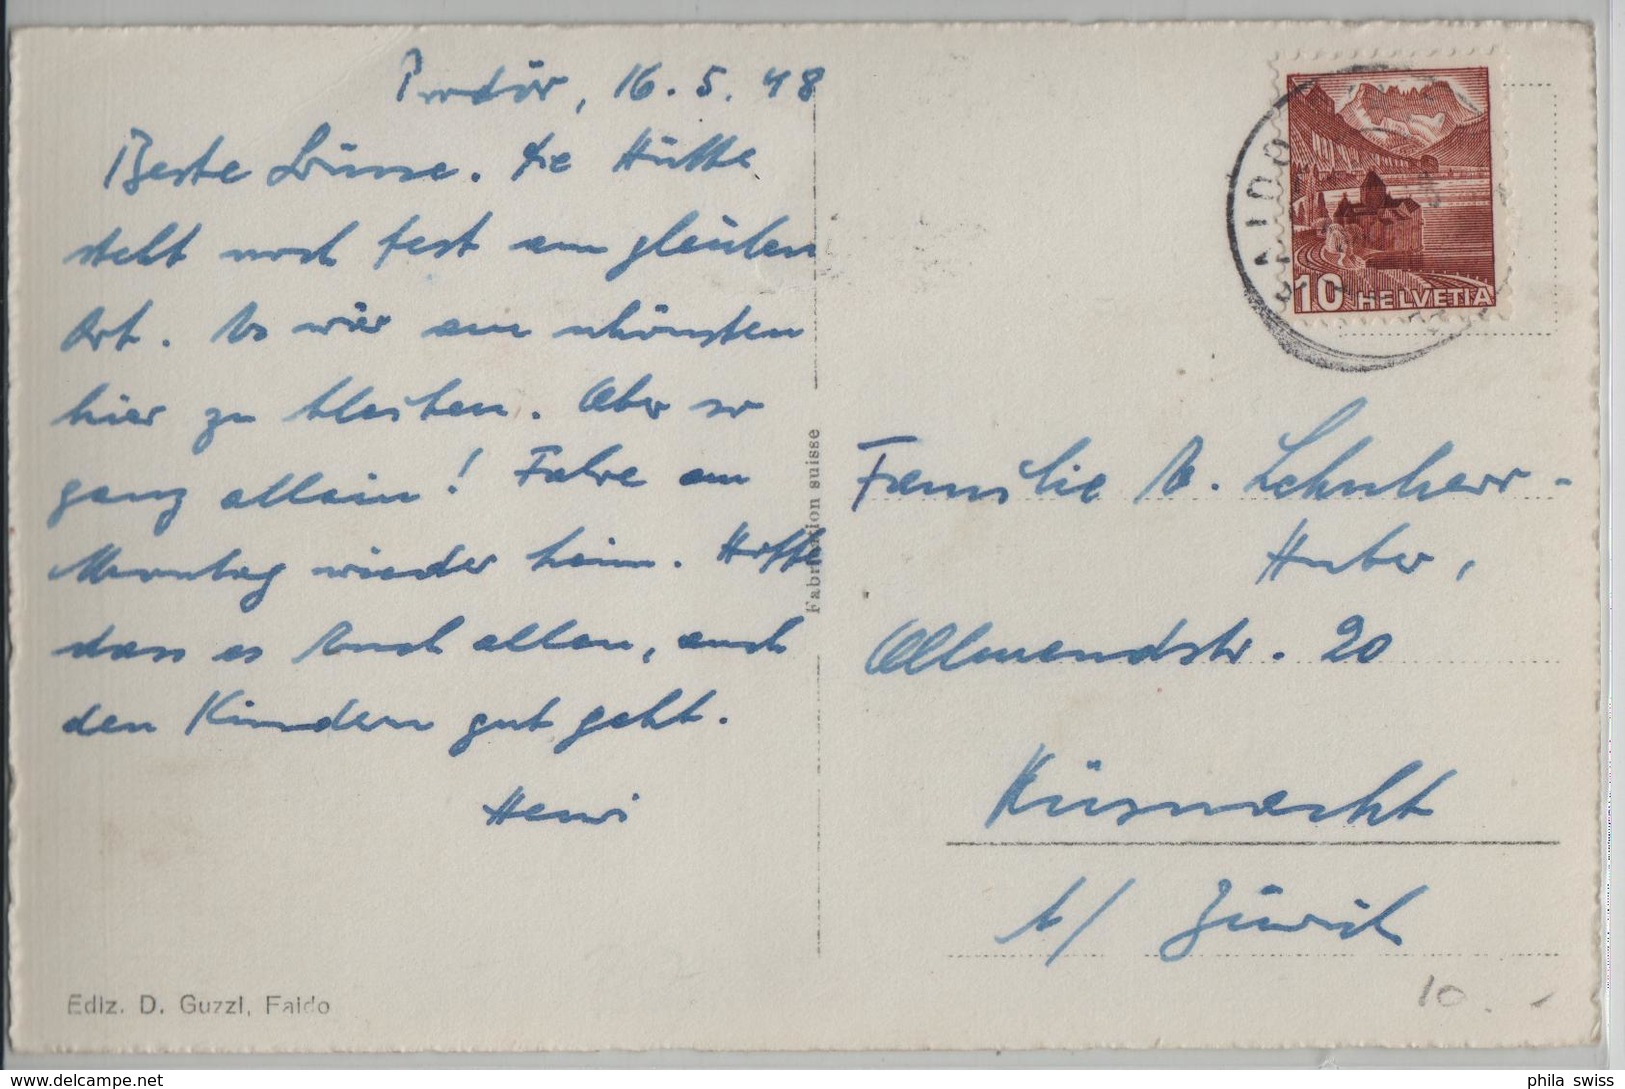 Prodör, 16.5.48
Beste Grüsse. Die Hütte
steht noch fest am gleichen
Ort. Es wär am schönsten
hier zu bleiben. Aber so
ganz allein! Fahre am
Montag wieder heim. Hoffe
dass es Euch allen, auch
den Kindern gut geht.
Heini
Ediz. D. Guzzi, Faido
Fabrication suisse
FAIDO
10 HELVETIA
Familie E. Lehnherr-
Huber,
Allmendstr. 20
Küsnacht
b/ Zürich
10.-
delcampe.net
phila_swiss